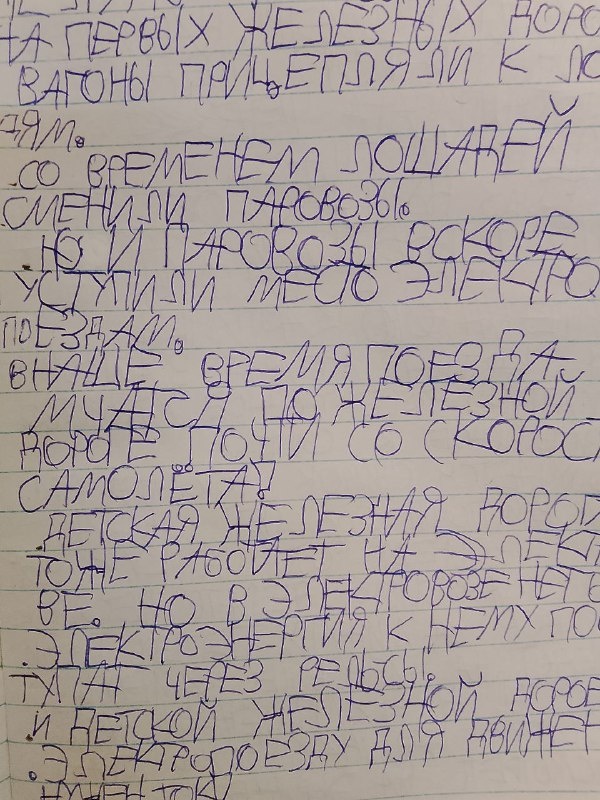 НА ПЕРВЫХ ЖЕЛЕЗНЫХ ДОРО
ВАГОНЫ ПРИЦЕПЛЯЛИ К ЛО
ДЯМ.
СО ВРЕМЕНЕМ ЛОШАДЕЙ
СМЕНИЛИ ПАРОВОЗЫ.
Ю И ПАРОВОЗЫ ВСКОРЕ
УСТУПИЛИ МЕСТО ЭЛЕКТРО
ПОЕЗДАМ.
В НАШЕ ВРЕМЯ ПОЕЗДА
МЧАТСЯ ПО ЖЕЛЕЗНОЙ
ДОРОГЕ ПОЧТИ СО СКОРОСТ
САМОЛЁТА!
ДЕТСКАЯ ЖЕЛЕЗНАЯ ДОРОГ
ТОЖЕ РАБОТАЕТ НА ЭЛЕКТ
ВЕ. НО В ЭЛЕКТРОВОЗЕ НЕТ
ЭЛЕКТРОЭНЕРГИЯ К НЕМУ ПОС
ТУПАТ ЧЕРЕЗ РЕЛЬСЫ.
И ДЕТСКОЙ ЖЕЛЕЗНОЙ ДОРОГ
ЭЛЕКТРОПОЕЗДУ ДЛЯ ДВИЖЕН
НУЖЕН ТОК!